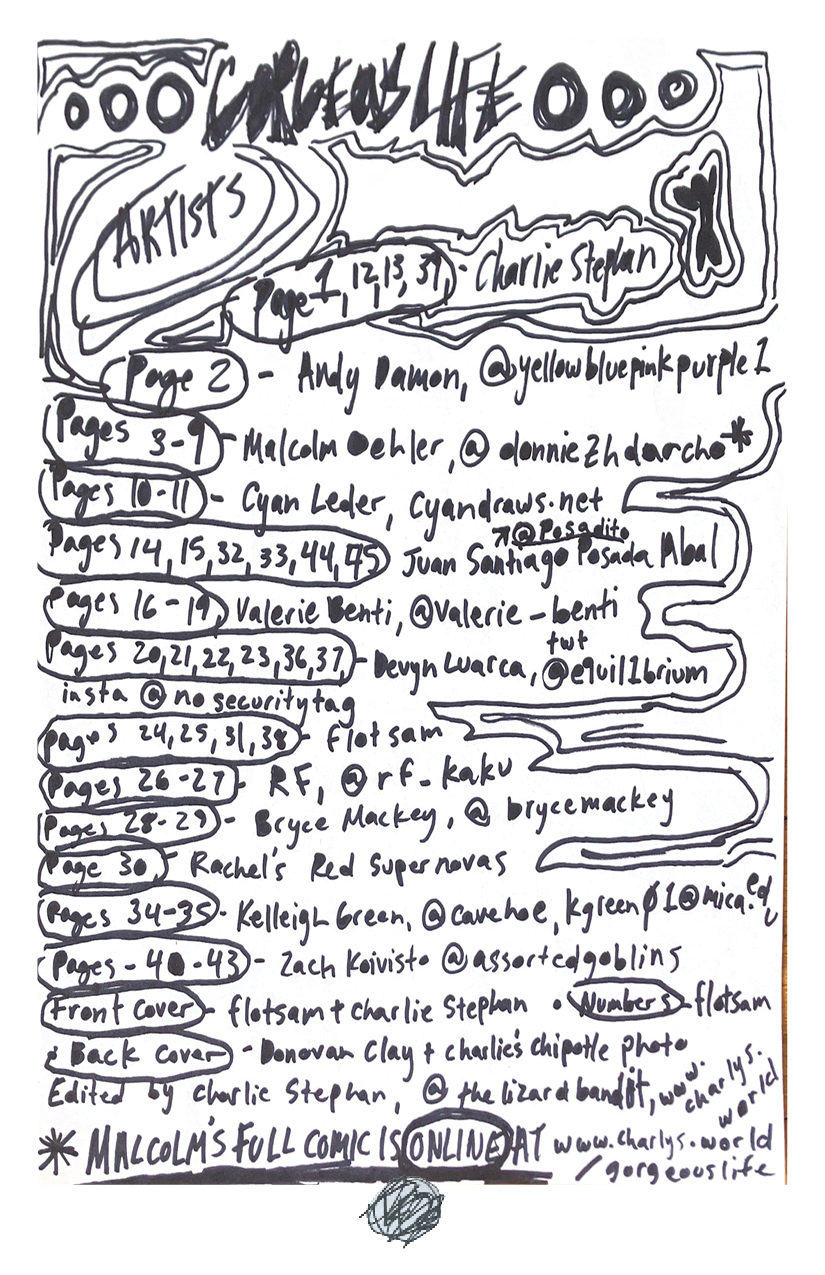 GORGEOUS LIFE
ARTISTS
Page 1, 12, 13, 39, - Charlie Stephan
Page 2 - Andy Damon, @yellowbluepinkpurple1
Pages 3-9 - Malcolm Oehler, @donniezhdarcho*
Pages 10-11 - Cyan Leder, Cyandraws.net
@Posadito
Pages 14, 15, 32, 33, 44, 45 Juan Santiago Posada Abal
Pages 16-19, Valerie Benti, @valerie-benti
twt
Pages 20, 21, 22, 23, 36, 37, - Devyn Luarca, @equil1brium
insta @nosecuritytag
pages 24, 25, 31, 38 - flotsam
Pages 26-27 - RF, @rf-kaku
Pages 28-29 - Bryce Mackey, @brycemackey
Page 30, - Rachel's Red Supernovas
Pages 34-35 - Kelleigh Green, @cavehoe, kgreen01@mica.edu
Pages - 40-43 - Zach Koivisto @assortedgoblins
Front cover - flotsam + charlie Stephan • Numbers - flotsam
& Back cover - Donovan Clay + charlie's chipotle photo
Edited by Charlie Stephan, @thelizardbandit, www.charlys.world
* MALCOLM'S FULL COMIC IS ONLINE AT www.charlys.world
/gorgeouslife